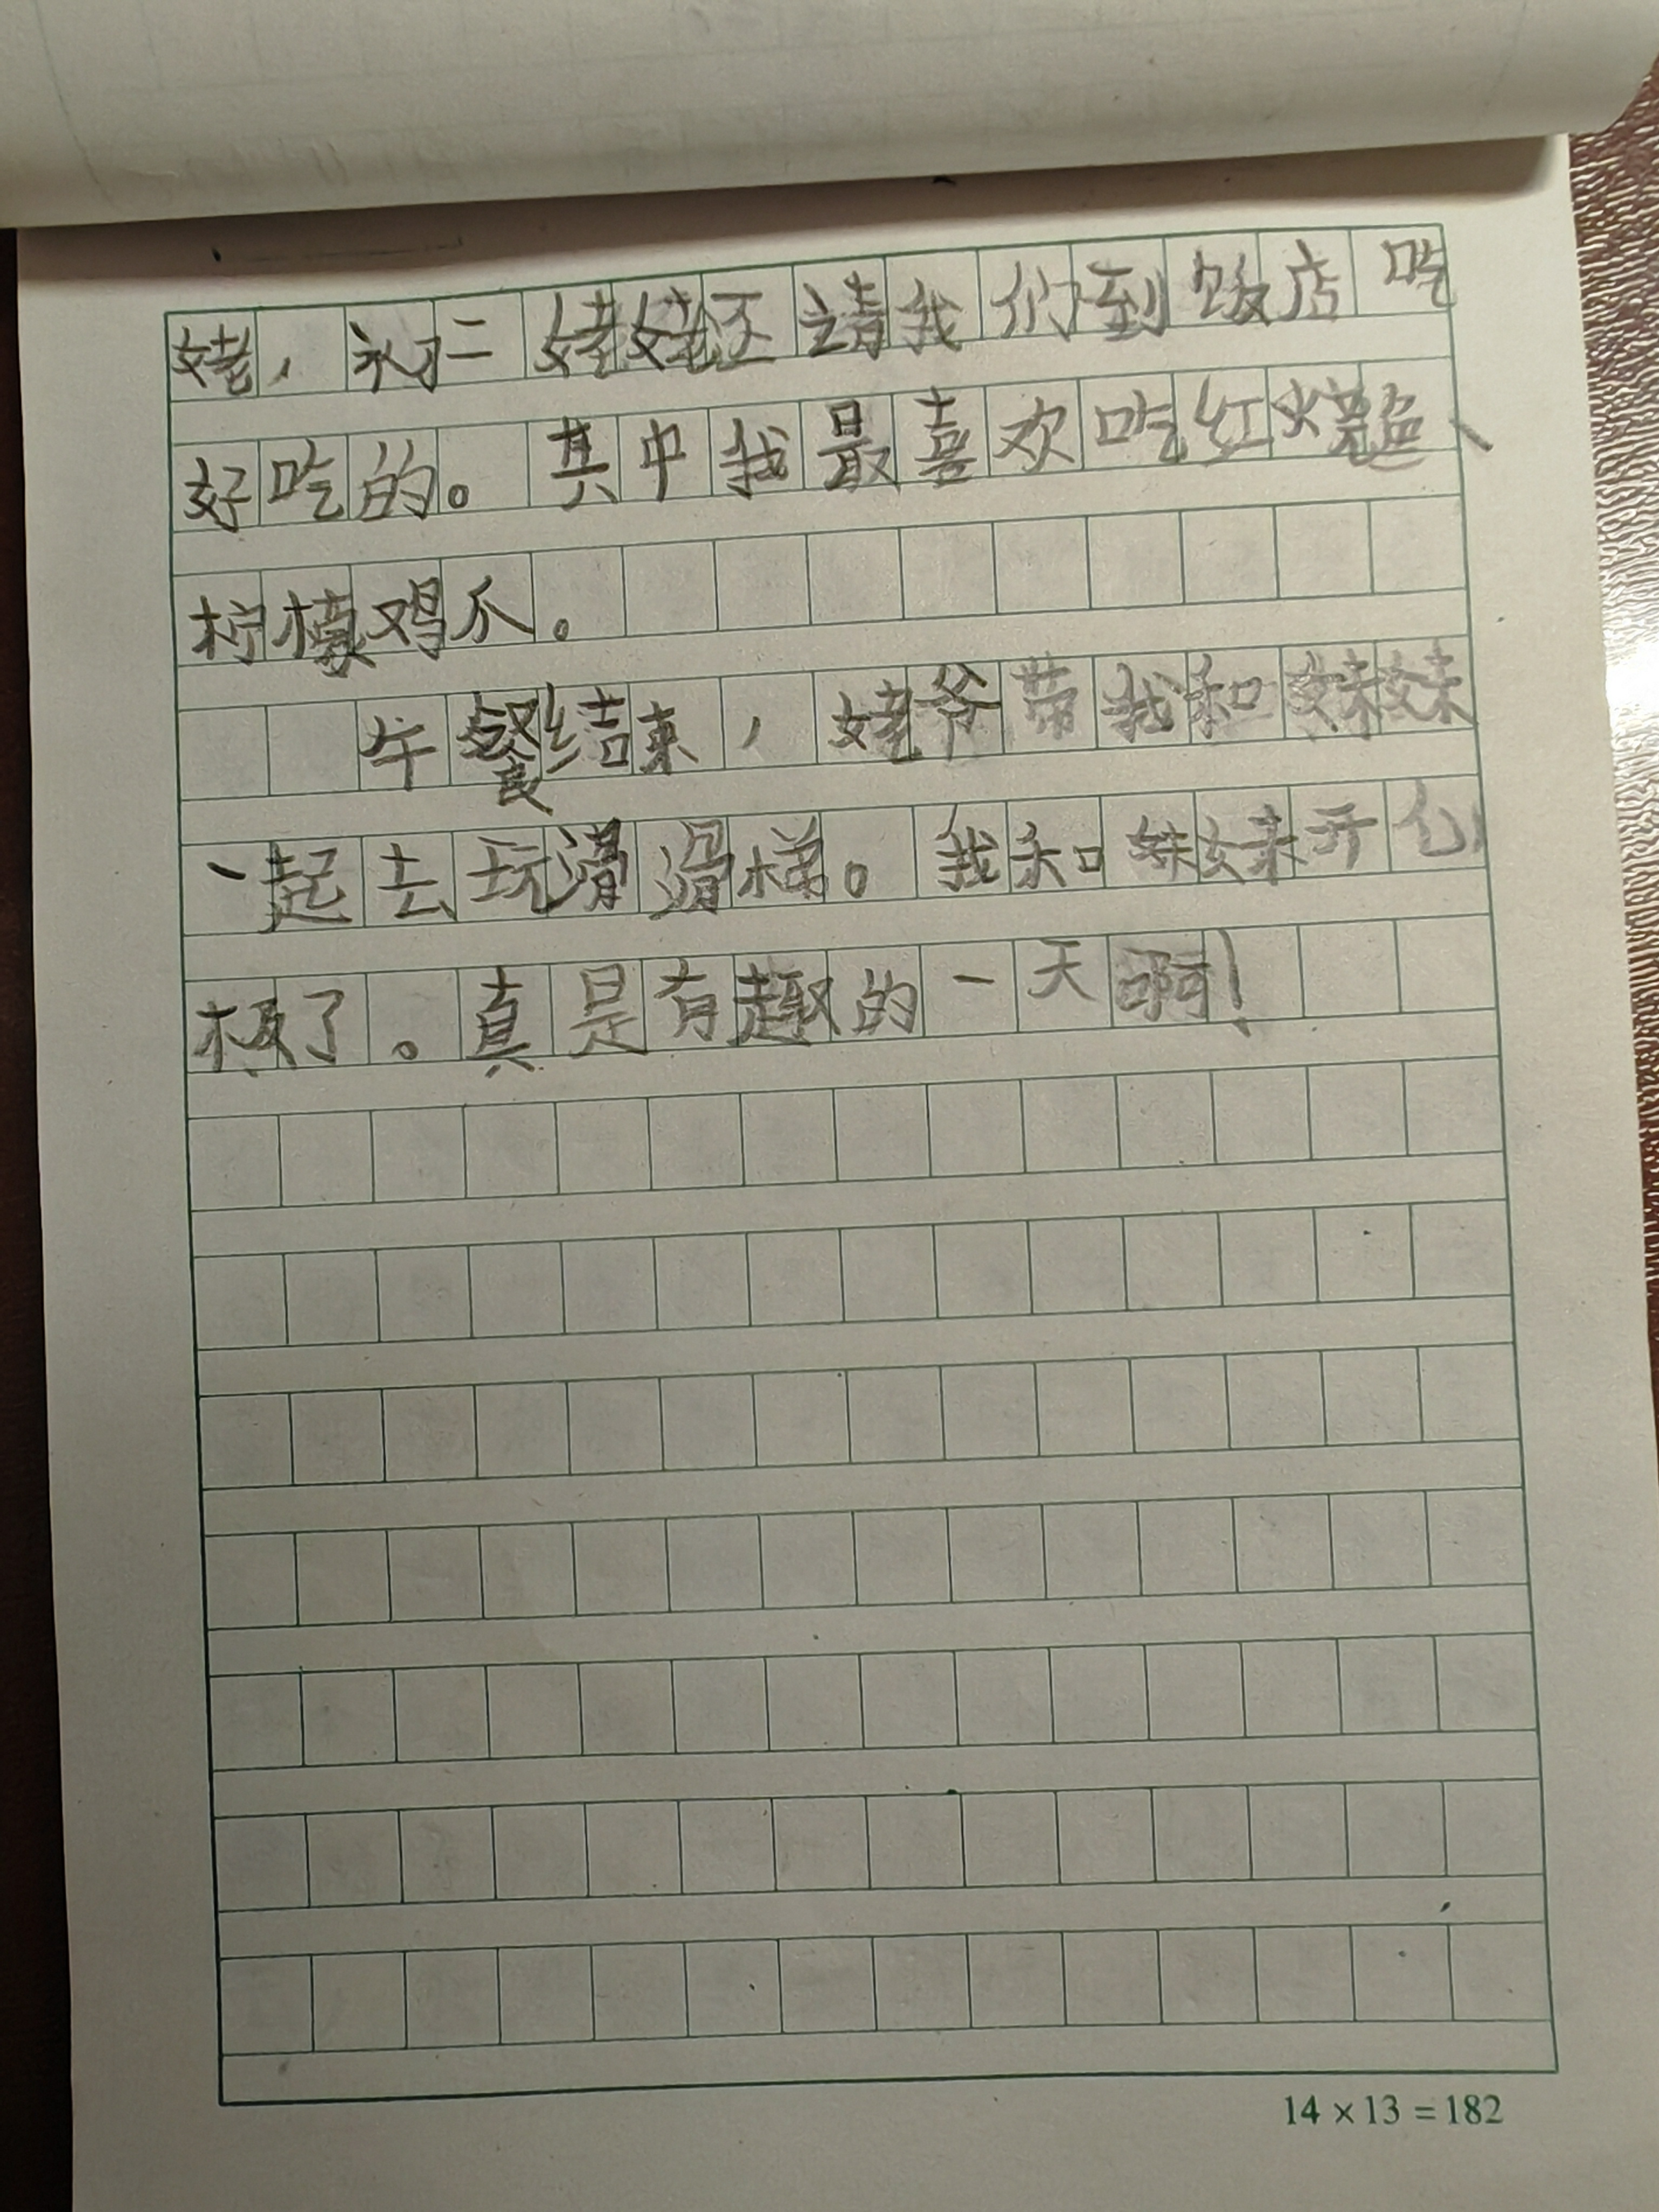 姥，初二姥姥还请我们到饭店吃
好吃的。其中我最喜欢吃红烧鱼、
柠檬鸡爪。
午餐结束，姥爷带我和妹妹
一起去玩滑滑梯。我和妹妹开心
极了。真是有趣的一天啊！
14×13=182